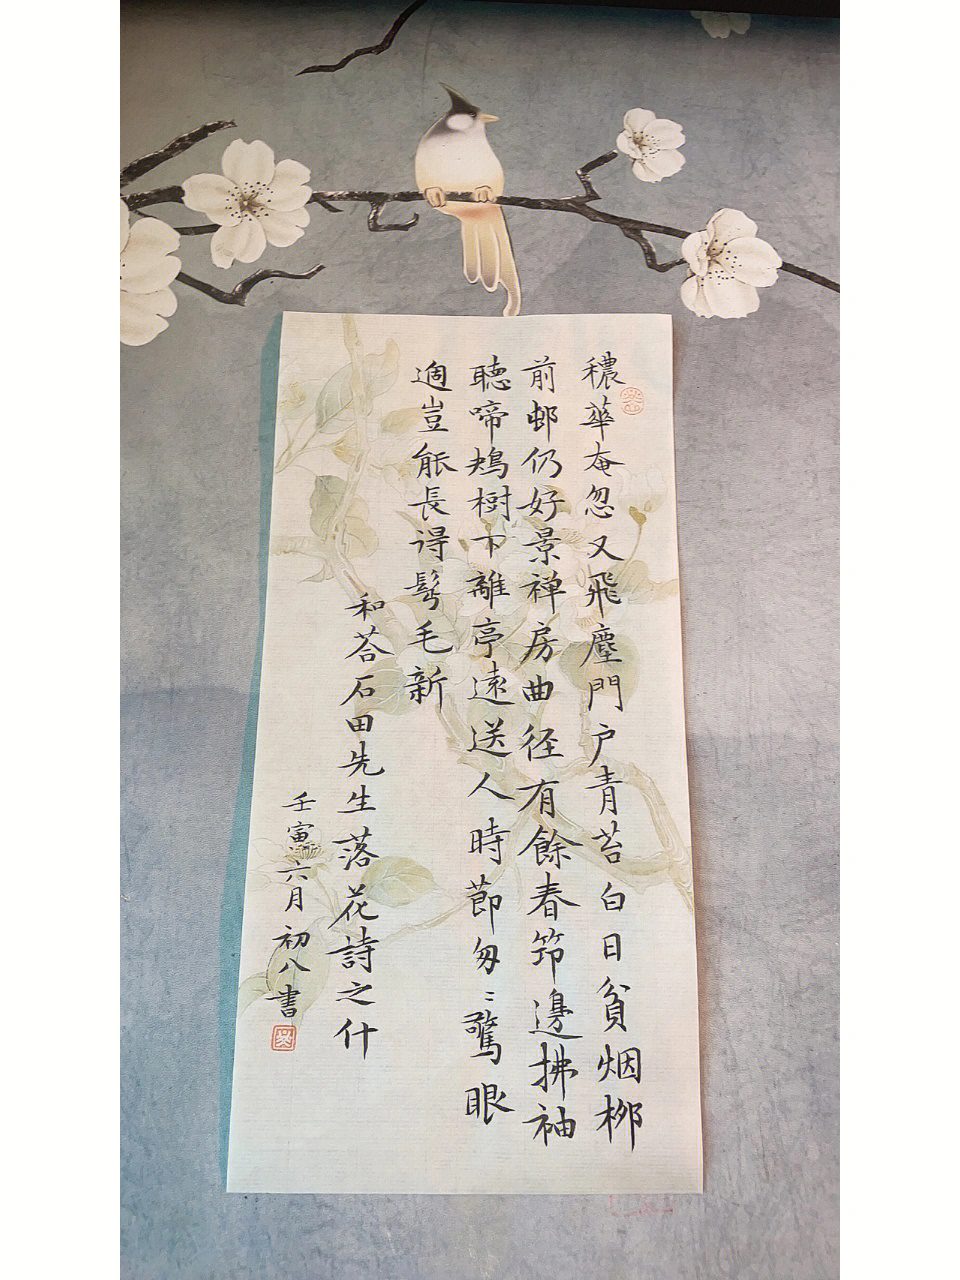 穠華奄忽又飛塵門户青苔白日貧烟栁
前邨仍好景禅房曲径有餘春笻邊拂袖
聴啼鴂樹下離亭遠送人時節匆〻驚眼
適豈能長得髩毛新
和荅石田先生落花詩之什
壬寅六月初八書